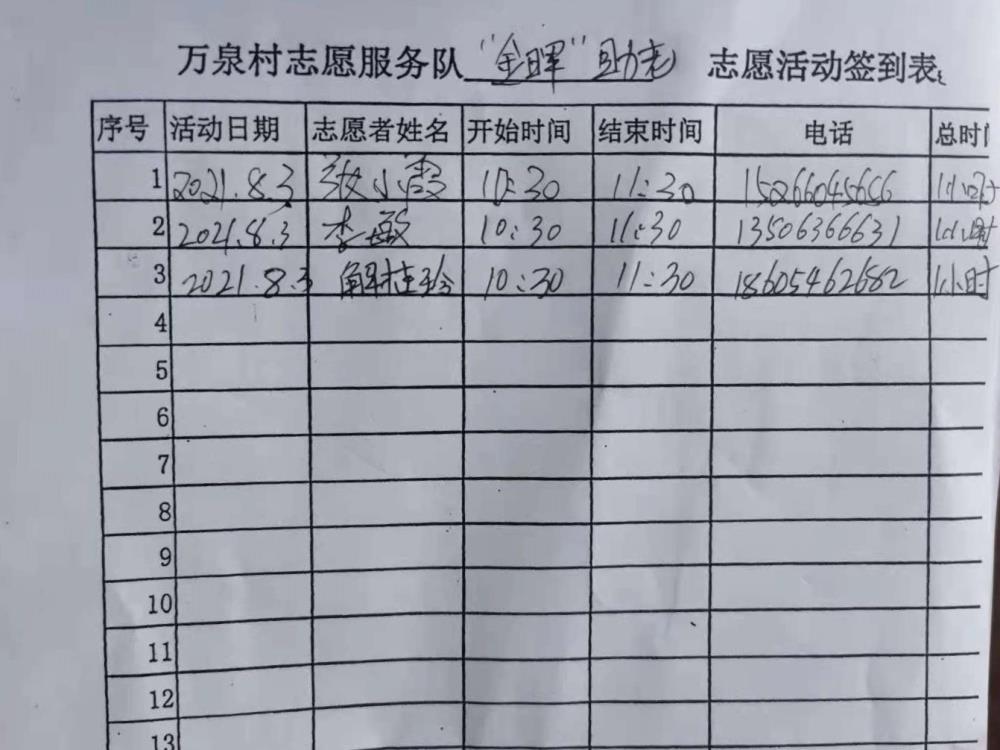 万泉村志愿服务队“金晖”助老 志愿活动签到表
序号 活动日期 志愿者姓名 开始时间 结束时间 电话 总时间
1 2021.8.3 张小霞 10:30 11:30 15266045656 1小时
2 2021.8.3 李敏 10:30 11:30 13506366631 1小时
3 2021.8.3 解桂珍 10:30 11:30 18605462682 1小时
4
5
6
7
8
9
10
11
12
13